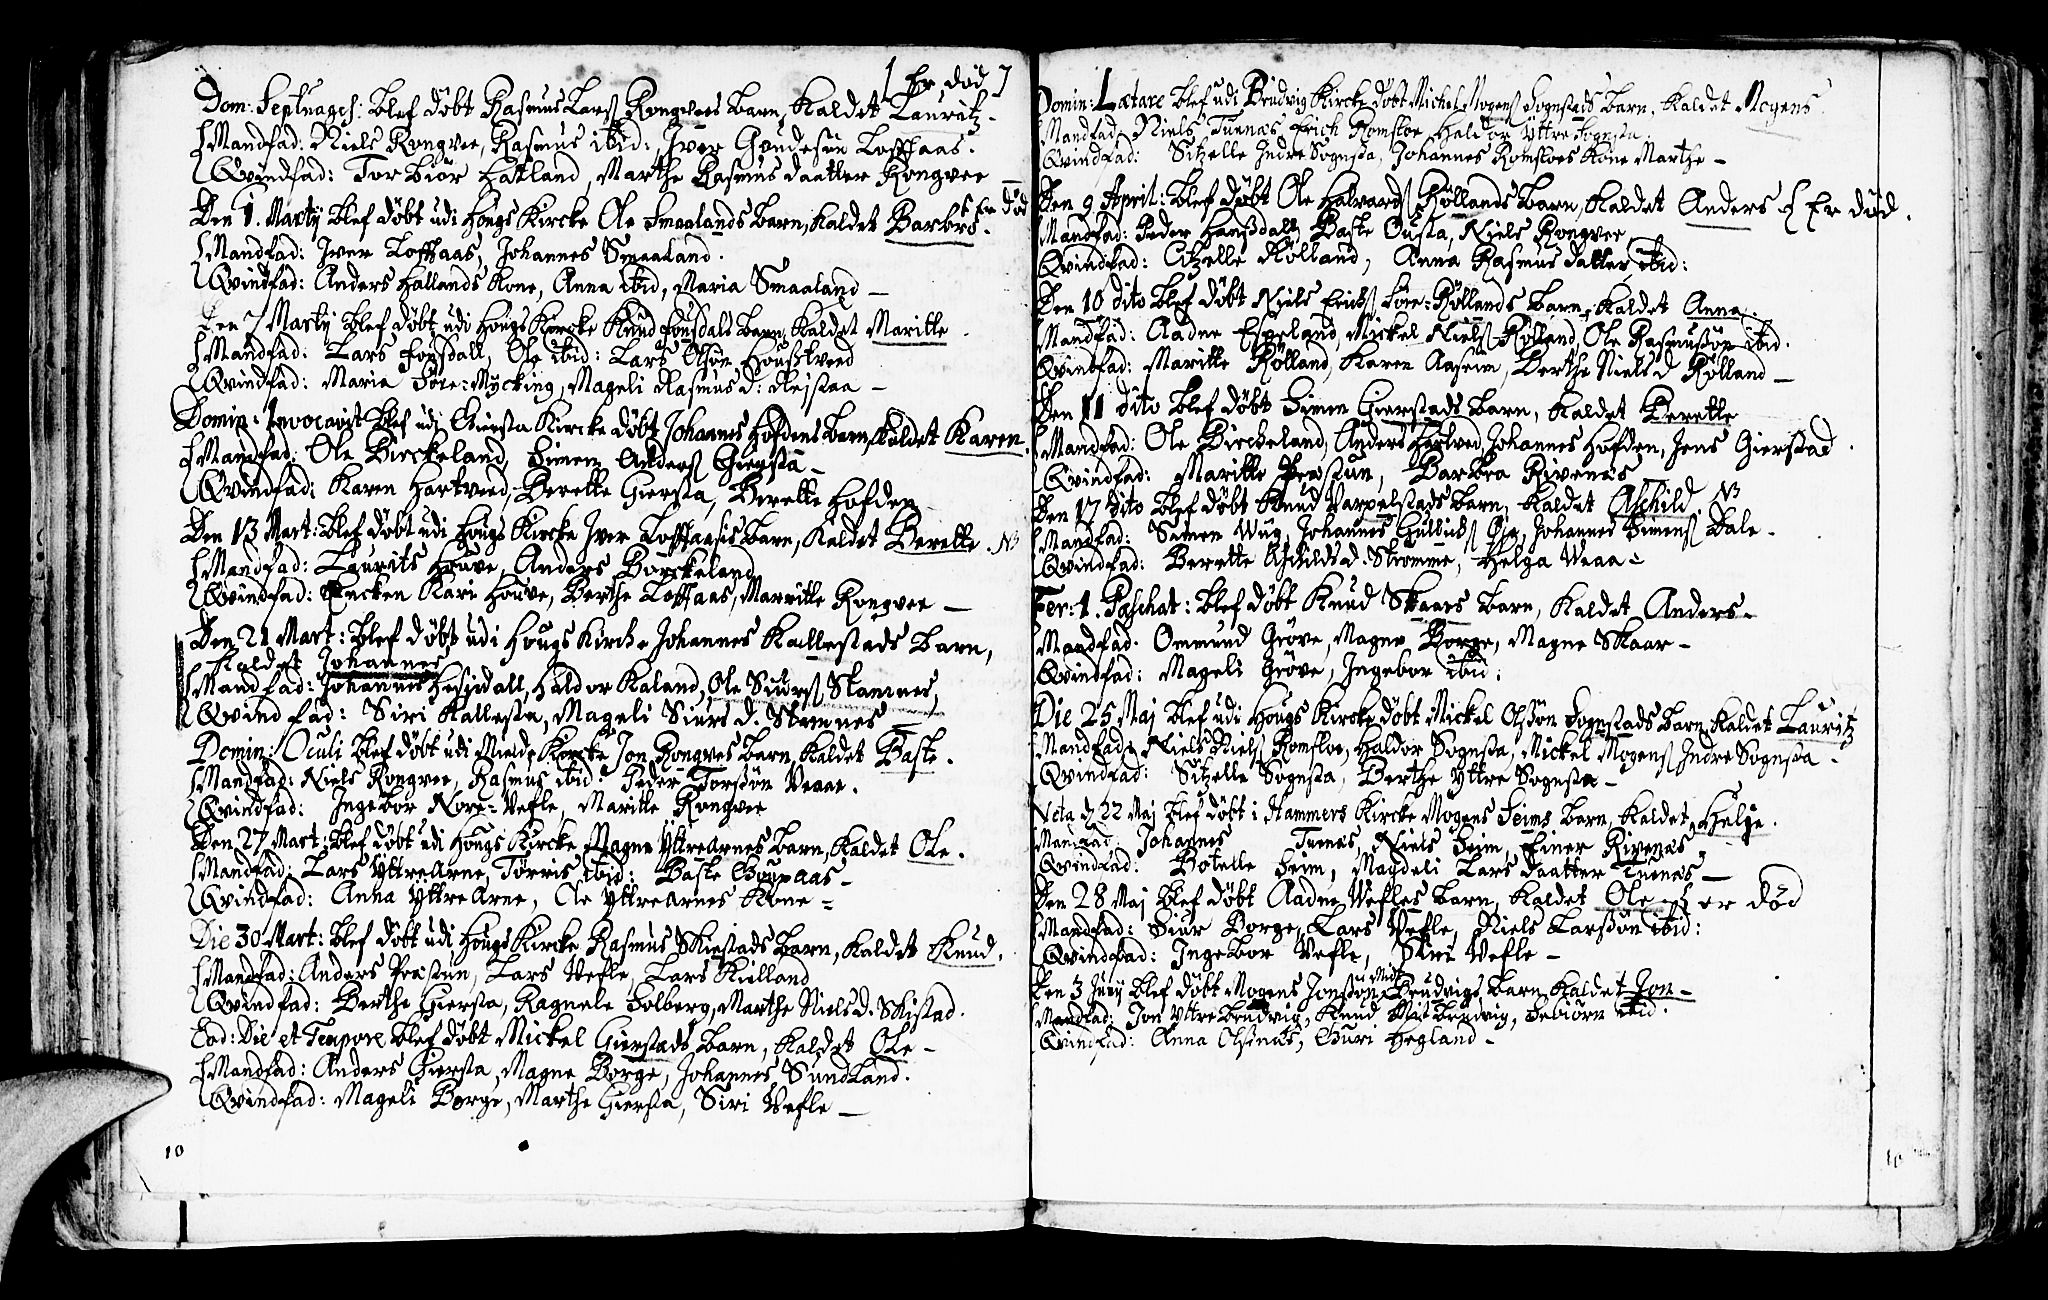 [ Er död ]
Dom: Septuages: Blef döbt Rasmus Lars Rongvees Barn, Kaldet Lauritz.
Mandfad: Niels Rongvee, Rasmus ibid: Iver Loffhaas.
Qvindfad: Torbiör Hatland, Marthe Rasmus daatter Rongvee
Den 1. Martij Blef döbt udi Hougs Kircke Ole Smaalands Barn, Kaldet Barbro. Er död
Mandfad: Iver Loffhaas, Johannes Smaaland.
Qvindfad: Anders Hallands Kone, Anna ibid, Maria Smaaland —
Den 7 Martij Blef döbt udi Hougs Kircke Knud Fonsdals Barn, Kaldet Maritte.
Mandfad: Lars Fonsdall, Ole ibid: Lars Olsön
Qvindfad: Maria Söre-Mycking, Mageli Rasmus d: —
Domin: Invocavit Blef udi Giersta Kircke döbt Johannes Hofdens Barn, Kaldet Karen.
Mandfad: Ole Birckeland, Simen Anders Giersta —
Qvindfad: Karen Hartveed, Berette Giersta, Berette Hofden
Den 13 Mart: Blef döbt udi Hougs Kircke Iver Loffhaasis Barn, Kaldet Berette. NB
Mandfad: Laurits Houve, Anders Borckeland
Qvindfad: Encken Kari Houve, Berthe Loffhaas, Marritte Rongvee —
Den 21 Mart: Blef döbt udi Hougs Kircke Johannes Kallestads Barn,
Kaldet Johannes
Mandfad: Johannes Hesjedall, Haldor Kaland, Ole Siurs Stamnes,
Qvindfad: Siri Kallesta, Mageli Siurs d. Stamnes —
Domin: Oculi Blef döbt udi Mielde Kircke Jon Rongves Barn, Kaldet Baste.
Mandfad: Niels Rongvee, Rasmus ibid: Peder Torssön Veaae.
Qvindfad: Ingebor Nore-Vefle, Maritte Rongvee
Den 27 Mart: Blef döbt udi Hougs Kircke Magne YttreArnes Barn, Kaldet Ole.
Mandfad: Lars YttreArne, Törris ibid: Baste
Qvindfad: Anna YttreArne, Ole YttreArnes Kone —
Die 30 Mart: Blef döbt udi Hougs Kircke Rasmus Skiestads Barn, Kaldet Knud.
Mandfad: Anders Præstun, Lars Vefle, Lars Kielland
Qvindfad: Berthe Giersta, Ragnele Solberg, Marthe Niels d. Skistad.
Ead: Die et Tempore Blef döbt Mickel Gierstads Barn, Kaldet Ole —
Mandfad: Anders Giersta, Magne Borge, Johannes Sundland.
Qvindfad: Mageli Borge, Marthe Giersta, Siri Vefle —
10
Domin: Lætare Blef udi Brudvig Kircke döbt Michel Mogens Sognstads Barn, Kaldet Mogens.
Mandfad: Niels Tunæs, Erich Romsloe, Haldor Yttre Sognsta.
Qvindfad: Sitzelle Indre Sognsta, Johannes Romsloes Kone Marthe —
Den 9 April: Blef döbt Ole Halvards Röllands Barn, Kaldet Anders [ Er död.
Mandfad: Peder Hansdall, Baste Ousta, Niels Rongvee
Qvindfad: Citzelle Rölland, Anna Rasmus datter ibid:
Den 10 dito Blef döbt Niels Erichs Söre-Röllands Barn, Kaldet Anna.
Mandfad: Aadne Espeland, Mickel Niels Rölland, Ole Rasmussön ibid.
Qvindfad: Maritte Rölland, Karen Aaseim, Berthe Niels d Rölland —
Den 11 dito Blef döbt Simen Gierstads Barn, Kaldet Berette
Mandfad: Ole Birckeland, Anders Hartved, Johannes Hofden, Jens Gierstad.
Qvindfad: Maritte Præstun, Barbra Rivenæs
Den 17 dito Blef döbt Knud Varpelstads Barn, Kaldet Aschild. NB
Mandfad: Simen Wiig, Johannes Johannes Simens Dale.
Qvindfad: Berette Aschilds d. Strømme, Helga Veaa —
Fer: 1. Paschat: Blef döbt Knud Skaars Barn, Kaldet Anders —
Mandfad: Ommund Gröve, Magne Borge, Magne Skaar —
Qvindfad: Mageli Gröve, Ingebor ibid:
Die 25 Maj Blef udi Hougs Kircke döbt Mickel Olssön Sognstads Barn, Kaldet Lauritz
Mandfad: Niels Niels Romsloe, Haldor Sognsta, Mickel Mogens Indre Sognsta.
Qvindfad: Sitzelle Sognsta, Berthe Yttre Sognsta —
Nota d 22 Maj Blef döbt i Hammers Kircke Mogens Seims Barn, Kaldet Helje.
Mandfad: Johannes Tunæs, Niels Seim, Einer Rivenæs
Qvindfad: Botelle Seim, Magdeli Lars daatter Tunæs —
Den 28 Maj Blef döbt Aadne Vefles Barn, Kaldet Ole [ er död
Mandfad: Siur Borge, Lars Vefle, Niels Larssön ibid:
Qvindfad: Ingebor Vefle, Siri Vefle —
Den 3 Junij Blef döbt Mogens Jonssön Midt Brudvigs Barn, Kaldet Jon —
Mandfad: Jon Yttre Brudvig, Knud Mit Brudvig, Sebiörn ibid.
Qvindfad: Anna Olsnæs, Guri Hegland —
10